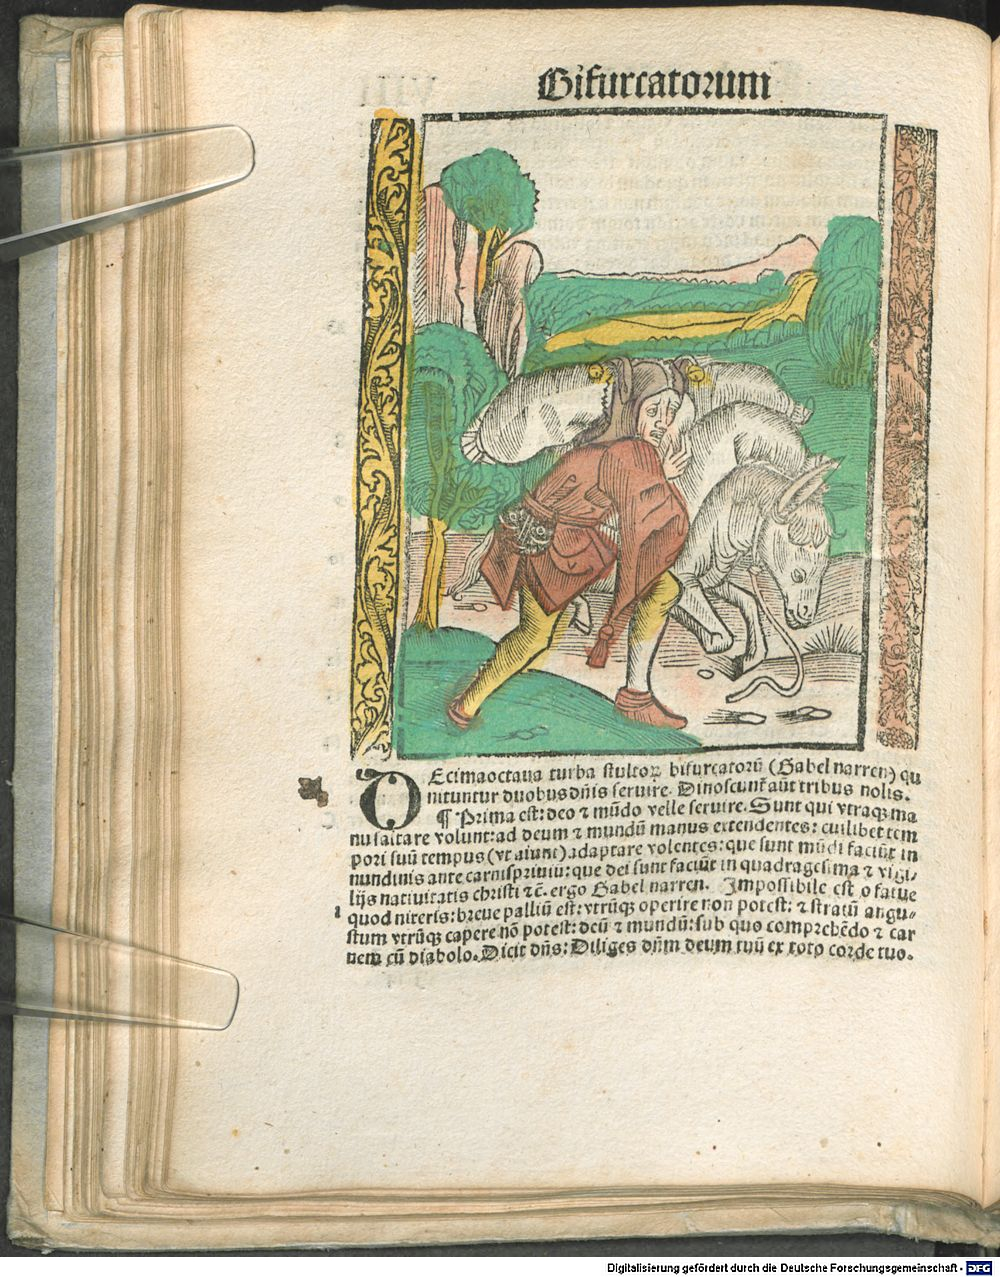 Bifurcatorum
DEcimaoctaua turba stultoꝝ bifurcatorū (Gabel narren) qui
nituntur duobus dn̄is seruire. Dinoscunt᷑ aūt tribus nolis.
¶ Prima est: deo ⁊ mūdo velle seruire. Sunt qui vtraqꝫ ma
nu saltare volunt: ad deum ⁊ mundū manus extendentes: cuilibet tem
pori suū tempus (vt aiunt) adaptare volentes: que sunt mūdi faciūt in
nundinis ante carnispriuiū: que dei sunt faciūt in quadragesima ⁊ vigi⸗
lijs natiuitatis christi ⁊ē. ergo Gabel narren. Impossibile est o fatue
quod niteris: breue palliū est: vtrūqꝫ operire non potest: ⁊ stratū angu⸗
stum vtrūqꝫ capere nō potest: deū ⁊ mundū: sub quo comprehēdo ⁊ car
nem cū diabolo. Dicit dn̄s: Diliges dn̄m deum tuū ex toto corde tuo.
Digitalisierung gefördert durch die Deutsche Forschungsgemeinschaft - DFG